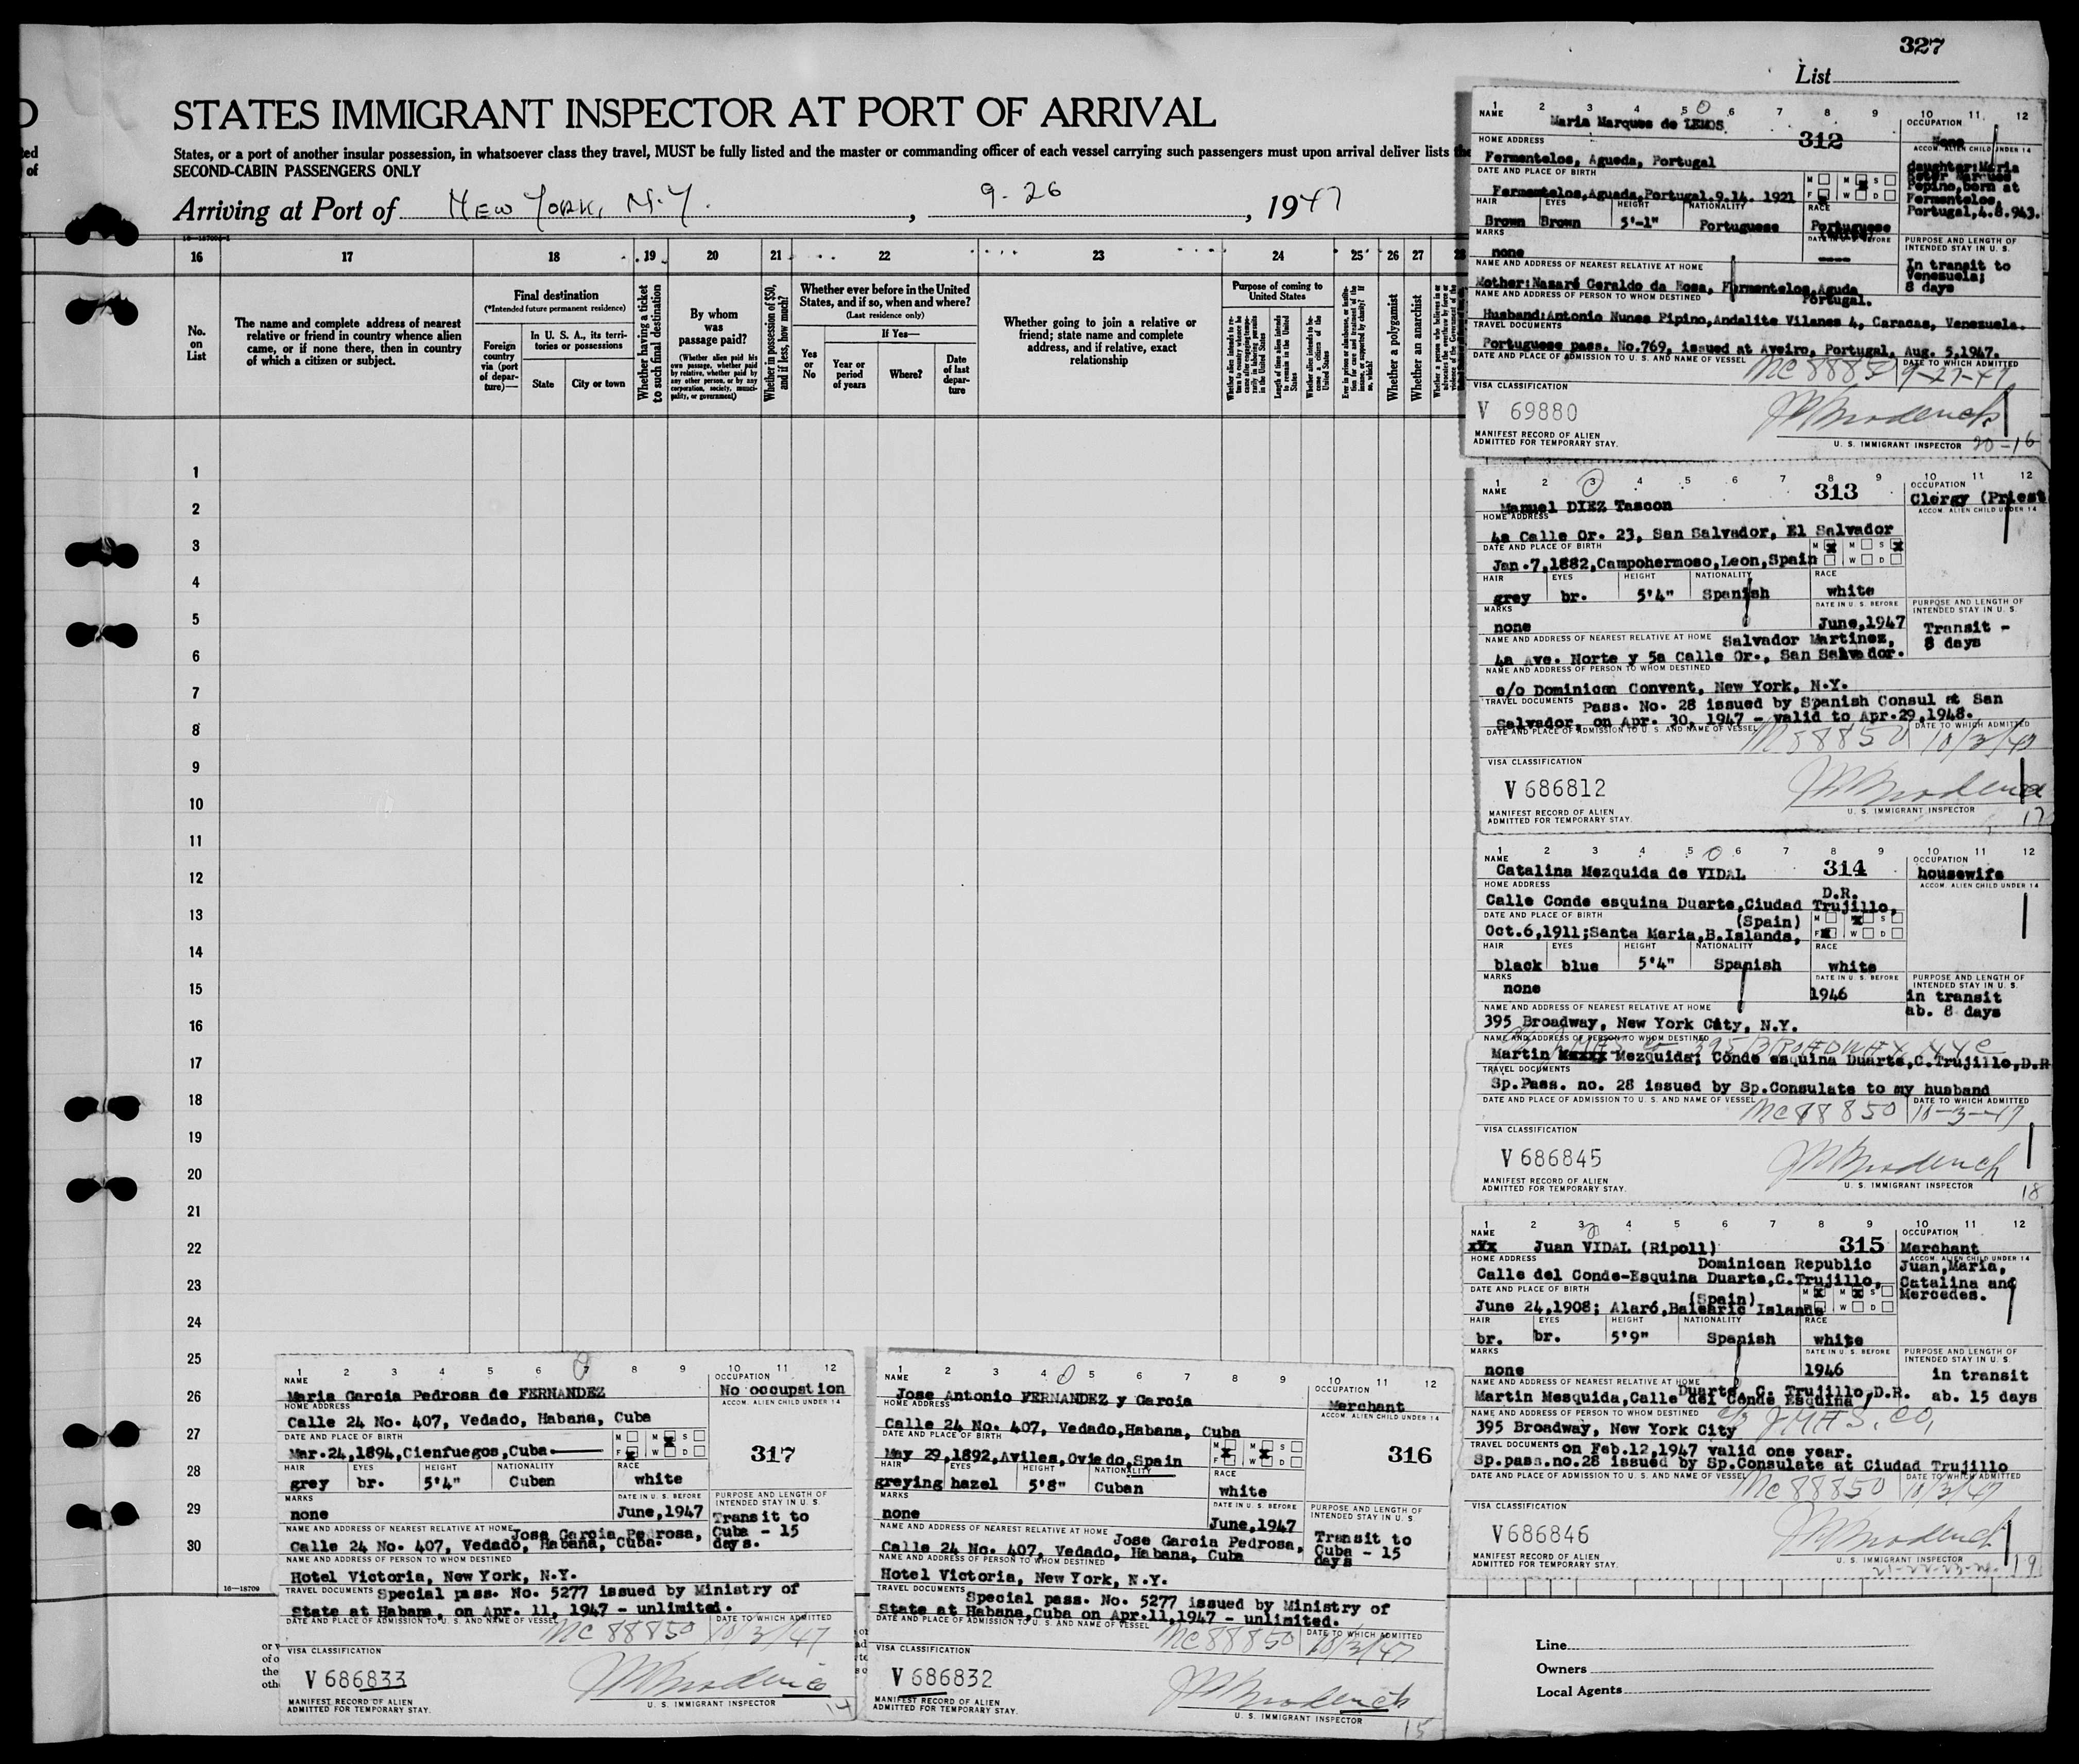 327
List
D
STATES IMMIGRANT INSPECTOR AT PORT OF ARRIVAL
ted
of
States, or a port of another insular possession, in whatsoever class they travel, MUST be fully listed and the master or commanding officer of each vessel carrying such passengers must upon arrival deliver lists the
SECOND-CABIN PASSENGERS ONLY
Arriving at Port of New York, N.Y. , 9-26 , 1947
16 17 18 19 20 21 22 23 24 25 26 27 28
No. on List
The name and complete address of nearest relative or friend in country whence alien came, or if none there, then in country of which a citizen or subject.
Final destination
(*Intended future permanent residence)
Foreign country via (port of departure)—
In U. S. A., its territories or possessions
State
City or town
Whether having a ticket to such final destination
By whom was passage paid?
(Whether alien paid his own passage, whether paid by relative, whether paid by any other person, or by any corporation, society, municipality, or government)
Whether in possession of $50, and if less, how much?
Whether ever before in the United States, and if so, when and where?
(Last residence only)
Yes or No
If Yes—
Year or period of years
Where?
Date of last departure
Whether going to join a relative or friend; state name and complete address, and if relative, exact relationship
Purpose of coming to United States
Whether a polygamist
Whether an anarchist
1
2
3
4
5
6
7
8
9
10
11
12
13
14
15
16
17
18
19
20
21
22
23
24
25
26
27
28
29
30
16—18709
1 2 3 4 5 6 7 8 9 10 11 12
NAME
Maria Marques de LEMOS
312
OCCUPATION
None
HOME ADDRESS
Fermentelos, Agueda, Portugal
ACCOM. ALIEN CHILD UNDER 14
daughter:Maria
Pepino,born at
Fermentelos,
Portugal,4.8.943.
DATE AND PLACE OF BIRTH
Fermentelos,Aguada,Portugal.9.14. 1921
M F M S W D
HAIR EYES HEIGHT NATIONALITY RACE
Brown Brown 5'-1" Portuguese Portuguese
MARKS
none
DATE IN U. S. BEFORE
----
PURPOSE AND LENGTH OF INTENDED STAY IN U. S.
In transit to
Venezuela;
8 days
NAME AND ADDRESS OF NEAREST RELATIVE AT HOME
Mother:Nazaré Geraldo da Rosa, Fermentelos,Aguda
Portugal.
NAME AND ADDRESS OF PERSON TO WHOM DESTINED
Husband:Antonio Nunes Pipino,Andalite Vilanes 4, Caracas, Venezuela.
TRAVEL DOCUMENTS
Portuguese pass. No.769, issued at Aveiro, Portugal, Aug. 5,1947.
DATE AND PLACE OF ADMISSION TO U. S. AND NAME OF VESSEL
DATE TO WHICH ADMITTED
MC 88850 9-27-47
VISA CLASSIFICATION
V 69880
MANIFEST RECORD OF ALIEN
ADMITTED FOR TEMPORARY STAY.
U. S. IMMIGRANT INSPECTOR
20-16
1 2 3 4 5 6 7 8 9 10 11 12
NAME
Manuel DIEZ Tascon
313
OCCUPATION
Clergy (Priest
HOME ADDRESS
ACCOM. ALIEN CHILD UNDER 14
4a Calle Or. 23, San Salvador, El Salvador
DATE AND PLACE OF BIRTH
Jan.7,1882,Campohermoso,Leon,Spain
M M S W D
HAIR EYES HEIGHT NATIONALITY RACE
grey br. 5'4" Spanish white
MARKS
none
DATE IN U. S. BEFORE
June,1947
PURPOSE AND LENGTH OF INTENDED STAY IN U. S.
Transit -
8 days
NAME AND ADDRESS OF NEAREST RELATIVE AT HOME
Salvador Martinez,
4a Ave. Norte y 5a Calle Or., San Salvador.
NAME AND ADDRESS OF PERSON TO WHOM DESTINED
c/o Dominican Convent, New York, N.Y.
TRAVEL DOCUMENTS
Pass. No. 28 issued by Spanish Consul at San
Salvador, on Apr. 30, 1947 - valid to Apr.29,1948.
DATE AND PLACE OF ADMISSION TO U. S. AND NAME OF VESSEL
DATE TO WHICH ADMITTED
88850 10/3/47
VISA CLASSIFICATION
V 686812
MANIFEST RECORD OF ALIEN
ADMITTED FOR TEMPORARY STAY.
U. S. IMMIGRANT INSPECTOR
17
1 2 3 4 5 6 7 8 9 10 11 12
NAME
Catalina Mezquida de VIDAL
314
OCCUPATION
housewife
HOME ADDRESS
ACCOM. ALIEN CHILD UNDER 14
D.R.
Calle Conde esquina Duarte,Ciudad Trujillo,
DATE AND PLACE OF BIRTH
(Spain)
Oct.6,1911;Santa Maria,B.Islands,
M F M S W D
HAIR EYES HEIGHT NATIONALITY RACE
black blue 5'4" Spanish white
MARKS
none
DATE IN U. S. BEFORE
1946
PURPOSE AND LENGTH OF INTENDED STAY IN U. S.
in transit
ab. 8 days
NAME AND ADDRESS OF NEAREST RELATIVE AT HOME
395 Broadway, New York City, N.Y.
NAME AND ADDRESS OF PERSON TO WHOM DESTINED
395 BROADWAY NYC
Martin xxxxx Mezquida; Conde esquina Duarte,C.Trujillo,D.R
TRAVEL DOCUMENTS
Sp.Pass. no. 28 issued by Sp.Consulate to my husband
DATE AND PLACE OF ADMISSION TO U. S. AND NAME OF VESSEL
DATE TO WHICH ADMITTED
MC 88850 10-3-47
VISA CLASSIFICATION
V 686845
MANIFEST RECORD OF ALIEN
ADMITTED FOR TEMPORARY STAY.
U. S. IMMIGRANT INSPECTOR
18
1 2 3 4 5 6 7 8 9 10 11 12
NAME
xxx Juan VIDAL (Ripoll)
315
OCCUPATION
Merchant
HOME ADDRESS
Dominican Republic
Calle del Conde-Esquina Duarte,C.Trujillo,
ACCOM. ALIEN CHILD UNDER 14
Juan,Maria,
Catalina and
Mercedes.
DATE AND PLACE OF BIRTH
(Spain)
June 24,1908; Alaró,Balearic Islands
M M S W D
HAIR EYES HEIGHT NATIONALITY RACE
br. br. 5'9" Spanish white
MARKS
none
DATE IN U. S. BEFORE
1946
PURPOSE AND LENGTH OF INTENDED STAY IN U. S.
in transit
ab. 15 days
NAME AND ADDRESS OF NEAREST RELATIVE AT HOME
Duarte, C. Trujillo,D.R.
Martin Mesquida,Calle del Conde Esquina
NAME AND ADDRESS OF PERSON TO WHOM DESTINED
395 Broadway, New York City
TRAVEL DOCUMENTS
on Feb.12,1947 valid one year.
Sp.pass.no.28 issued by Sp.Consulate at Ciudad Trujillo
DATE AND PLACE OF ADMISSION TO U. S. AND NAME OF VESSEL
DATE TO WHICH ADMITTED
MC 88850 10/3/47
VISA CLASSIFICATION
V686846
MANIFEST RECORD OF ALIEN
ADMITTED FOR TEMPORARY STAY.
U. S. IMMIGRANT INSPECTOR
21-22-23-24. 19
1 2 3 4 5 6 7 8 9 10 11 12
NAME
Maria Garcia Pedrosa de FERNANDEZ
OCCUPATION
No occupation
HOME ADDRESS
ACCOM. ALIEN CHILD UNDER 14
Calle 24 No. 407, Vedado, Habana, Cuba
DATE AND PLACE OF BIRTH
Mar.24,1894,Cienfuegos,Cuba
M F M S W D
317
HAIR EYES HEIGHT NATIONALITY RACE
grey br. 5'4" Cuban white
MARKS
none
DATE IN U. S. BEFORE
June,1947
PURPOSE AND LENGTH OF INTENDED STAY IN U. S.
Transit to
Cuba - 15
days.
NAME AND ADDRESS OF NEAREST RELATIVE AT HOME
Jose Garcia Pedrosa,
Calle 24 No. 407, Vedado, Habana, Cuba.
NAME AND ADDRESS OF PERSON TO WHOM DESTINED
Hotel Victoria, New York, N.Y.
TRAVEL DOCUMENTS
Special pass. No. 5277 issued by Ministry of
State at Habana, on Apr. 11, 1947 - unlimited.
DATE AND PLACE OF ADMISSION TO U. S. AND NAME OF VESSEL
DATE TO WHICH ADMITTED
MC 88850 10/3/47
VISA CLASSIFICATION
V 686833
MANIFEST RECORD OF ALIEN
ADMITTED FOR TEMPORARY STAY.
U. S. IMMIGRANT INSPECTOR
14
1 2 3 4 5 6 7 8 9 10 11 12
NAME
Jose Antonio FERNANDEZ y Garcia
OCCUPATION
Merchant
HOME ADDRESS
ACCOM. ALIEN CHILD UNDER 14
Calle 24 No. 407, Vedado,Habana, Cuba
DATE AND PLACE OF BIRTH
May 29,1892,Aviles,Oviedo,Spain
M F M S W D
316
HAIR EYES HEIGHT NATIONALITY RACE
greying hazel 5'8" Cuban white
MARKS
none
DATE IN U. S. BEFORE
June,1947
PURPOSE AND LENGTH OF INTENDED STAY IN U. S.
Transit to
Cuba - 15
days
NAME AND ADDRESS OF NEAREST RELATIVE AT HOME
Jose Garcia Pedrosa,
Calle 24 No. 407, Vedado, Habana, Cuba
NAME AND ADDRESS OF PERSON TO WHOM DESTINED
Hotel Victoria, New York, N.Y.
TRAVEL DOCUMENTS
Special pass. No. 5277 issued by Ministry of
State at Habana,Cuba on Apr.11,1947 - unlimited.
DATE AND PLACE OF ADMISSION TO U. S. AND NAME OF VESSEL
DATE TO WHICH ADMITTED
MC 88850 10/3/47
VISA CLASSIFICATION
V 686832
MANIFEST RECORD OF ALIEN
ADMITTED FOR TEMPORARY STAY.
U. S. IMMIGRANT INSPECTOR
15
Line
Owners
Local Agents